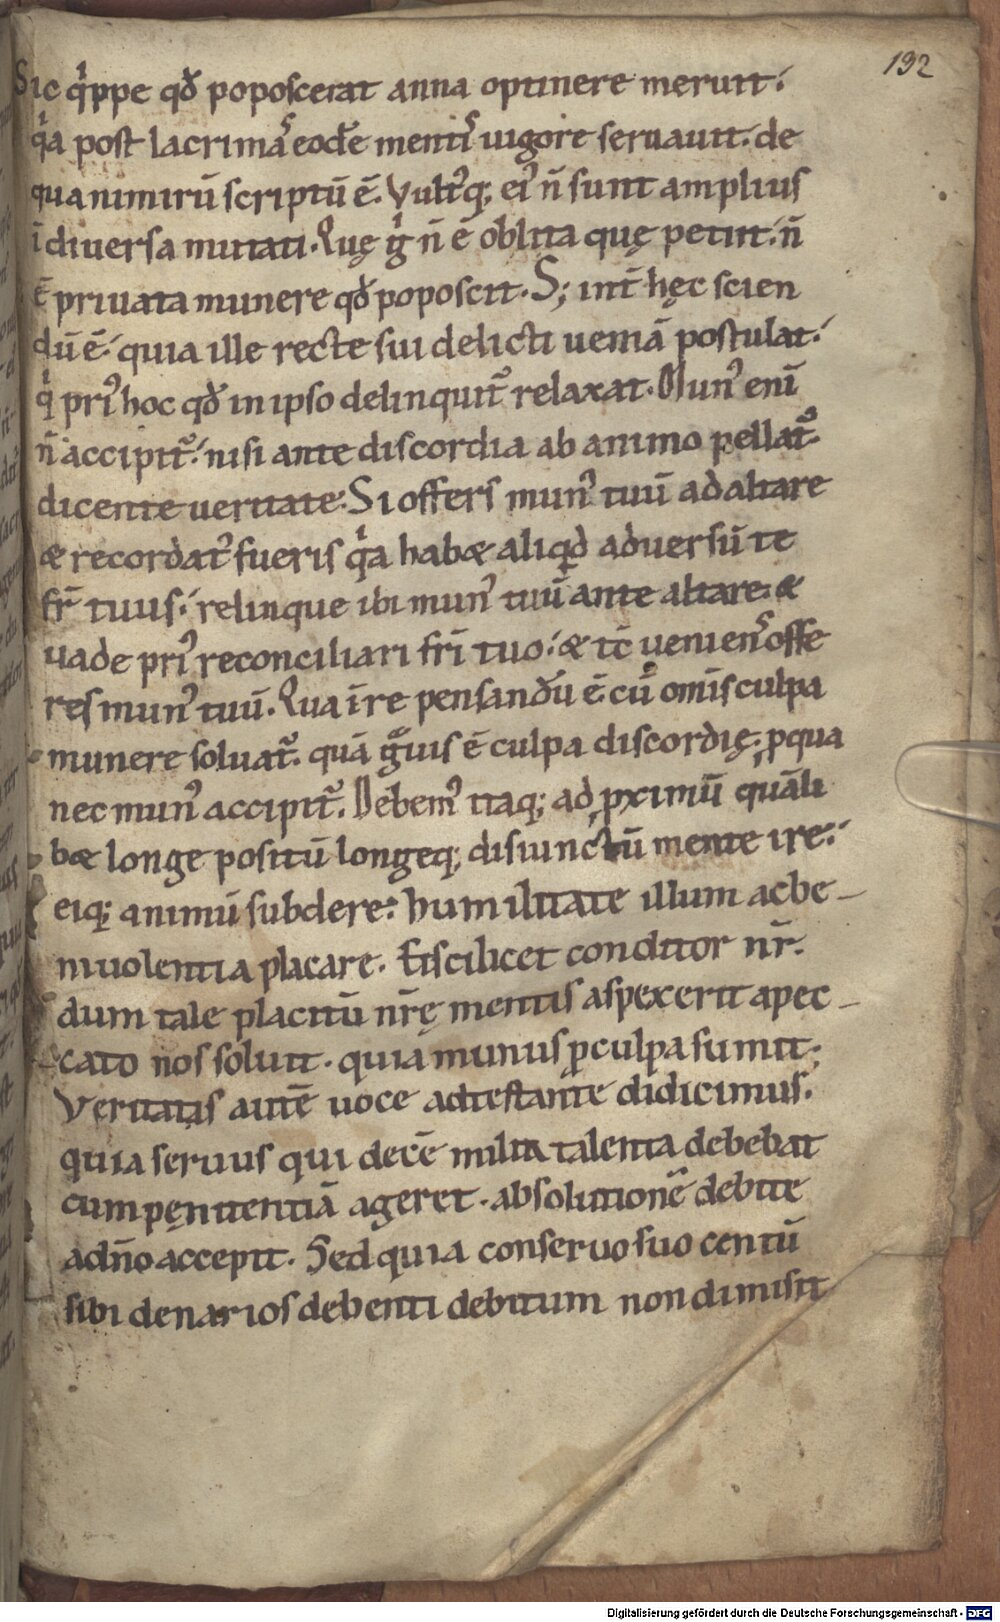 192
Sic qͥppe qđ poposcerat anna optinere meruit.
qͥa post lacrimaˢ eodē mentiˢ uigore seruauit. de
qua nimirū scriptū ē. Vultꝰq; eiꝰ n̄ sunt amplius
ī diuersa mutati. Quę gͥ n̄ ē oblita quę petiit. n̄
ē priuata munere qđ poposcit. S; int̄ hęc scien
dū ē. quia ille recte sui delicti ueniā postulat.
qͥ priꝰ hoc qđ in ipso delinquit᷑ relaxat. Munꝰ enī
n̄ accipit᷑. nisi ante discordia ab animo pellat᷑.
dicente ueritate. Si offers munꝰ tuū ad altare
& recordatꝰ fueris qͥa hab& aliqͥd aduersū te
fr̄ tuus. relinque ibi munꝰ tuū ante altare. &
uade priꝰ reconciliari fr̄i tuo. & tc̄ ueniens offe
res munꝰ tuū. Qua ī re pensandū ē. cū omīs culpa
munere soluat᷑. quā gͣuis ē culpa discordię. ꝓ qua
nec munꝰ accipit᷑. Debemꝰ itaq; ad ꝓximū quāli
b& longe positū longeq; disiunctū mente ire.
eiq; animū subdere. humilitate illum ac be-
niuolentia placare. Et scilicet conditor nr̄.
dum tale placitū nr̄ę mentis aspexerit a pec-
cato nos soluit. quia munus ꝓ culpa sumit.
Veritatis autē uoce adtestante didicimus.
quia seruus qui decē milia talenta debebat
cum pęnitentiā ageret. absolutionē debite
a dn̄o accepit. Sed quia conseruo suo centū
sibi denarios debenti debitum non dimisit
Digitalisierung gefördert durch die Deutsche Forschungsgemeinschaft - DFG